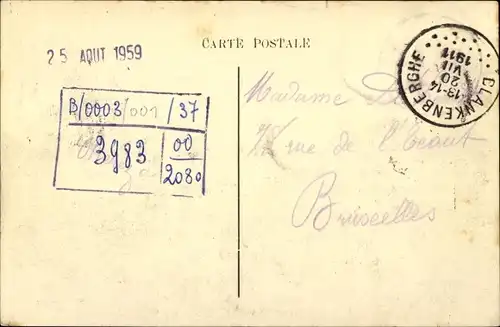 25 AOUT 1959
CARTE POSTALE
BLANKENBERGHE
13-14
20
VII
1911
B/0003/001/37
3983
00
2080
Madame
rue de l'Ecaut
Bruxelles